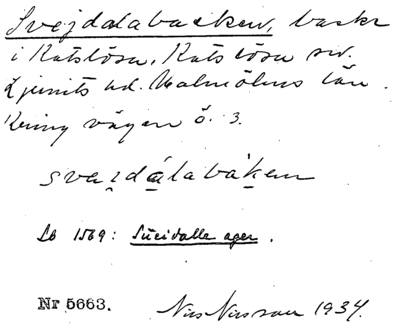 Svejdalabacken, backe
i Katslösa, Katslösa sn.
Ljunits hd. Malmöhus län.
Kring vägen ö. 3.
sveidálabákeṇ
Lb 1569: Sueidalle ager.
Nr 5663. Nils Nilsson 1934.